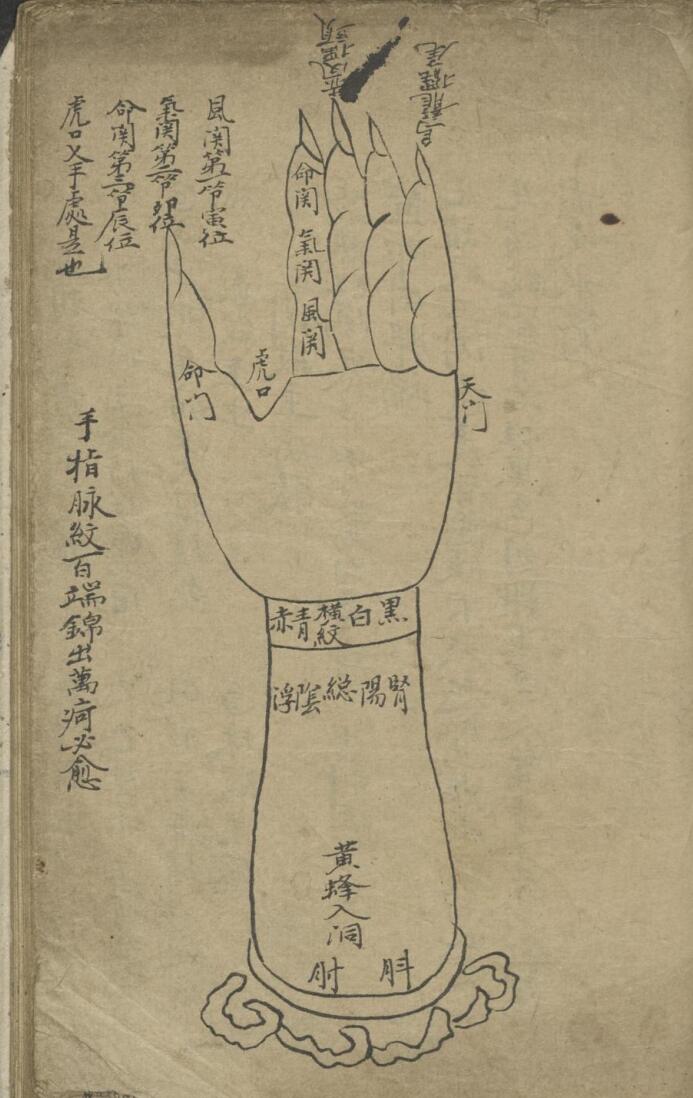 風関第一节寅位
氣関第二节卯位
命関第三节辰位
虎口乂手處是也
手指脉紋百端錦出萬疴必愈
烏龍擺尾
命関
氣関
風関
虎口
命门
天门
黒
白
横紋
青
赤
腎
陽
総
陰
浮
黄蜂入洞
肘